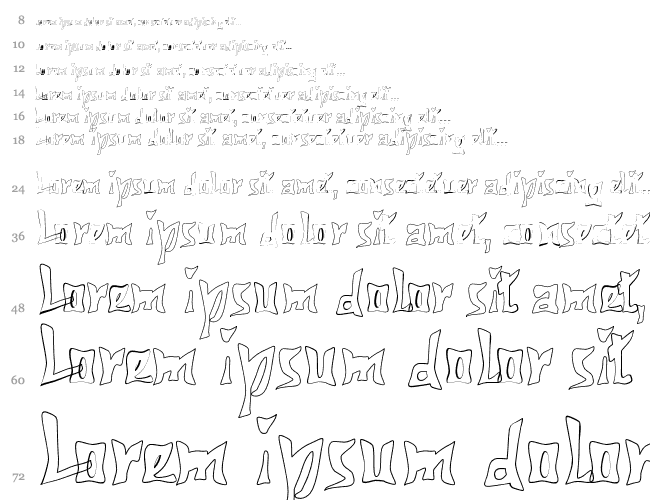 8 Lorem ipsum dolor sit amet, consectetuer adipiscing eli...
10 Lorem ipsum dolor sit amet, consectetuer adipiscing eli...
12 Lorem ipsum dolor sit amet, consectetuer adipiscing eli...
14 Lorem ipsum dolor sit amet, consectetuer adipiscing eli...
16 Lorem ipsum dolor sit amet, consectetuer adipiscing eli...
18 Lorem ipsum dolor sit amet, consectetuer adipiscing eli...
24 Lorem ipsum dolor sit amet, consectetuer adipiscing eli...
36 Lorem ipsum dolor sit amet, consectet
48 Lorem ipsum dolor sit amet,
60 Lorem ipsum dolor sit
72 Lorem ipsum dolor